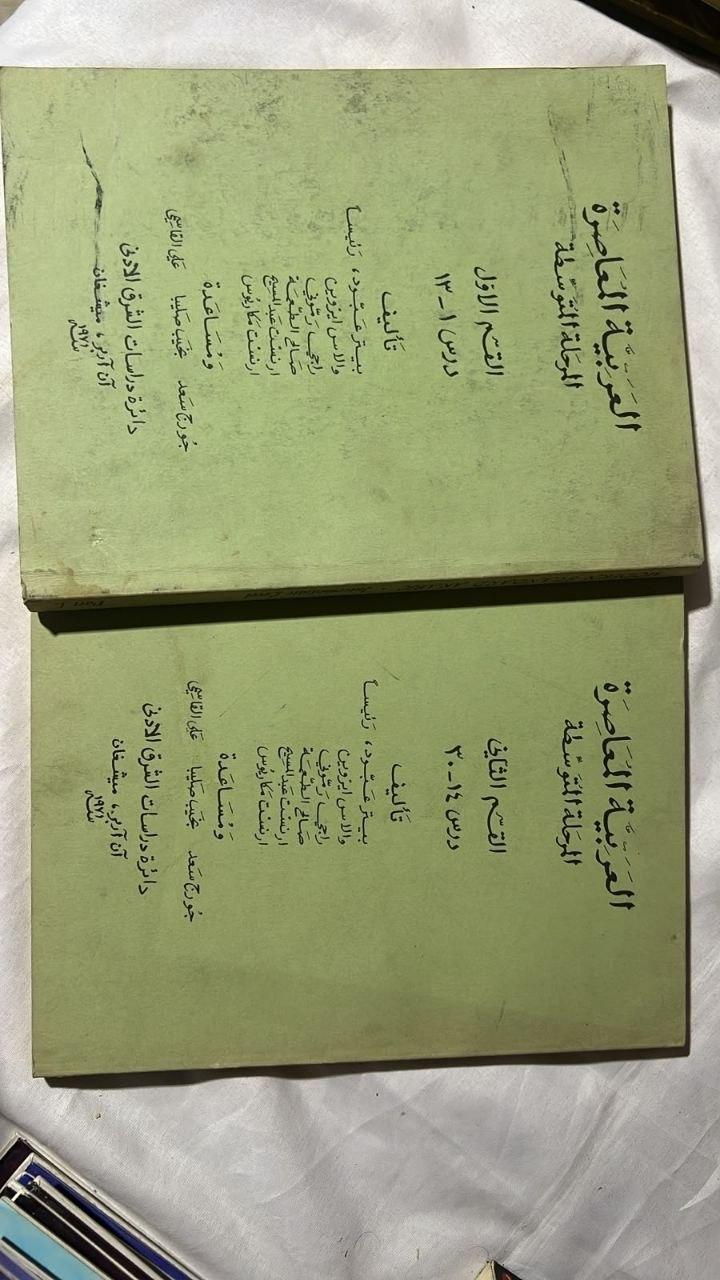 العَرَبيَّة المُعَاصِرَة
المرحلة المتوسّطة
القسْم الأوّل
درس ١-١٣
تأليف
بيتر عَبّود، رَئيسا
والاس ايروين
راجي رَمّوني
صَالح الطّعمَة
ارنسْت عَبد المسيح
ارنسْت مكاريُوس
وَمُسَاعَدة
جُورج سَعد نجيب صَليبا عَلي القاسِمي
دائرة دراسات الشرق الادنى
آن آربر، ميشغان
سنة ١٩٧١
MODERN STANDARD ARABIC • Intermediate Level Part I
العَرَبيَّة المُعَاصِرَة
المرحلة المتوسّطة
القسْم الثّاني
درس ١٤-٣٠
تأليف
بيتر عَبّود، رَئيسا
والاس ايروين
راجي رَمّوني
صَالح الطّعمَة
ارنسْت عَبد المسيح
ارنسْت مكاريُوس
وَمُسَاعَدة
جُورج سَعد نجيب صَليبا عَلي القاسِمي
دائرة دراسات الشرق الادنى
آن آربر، ميشغان
سنة ١٩٧١